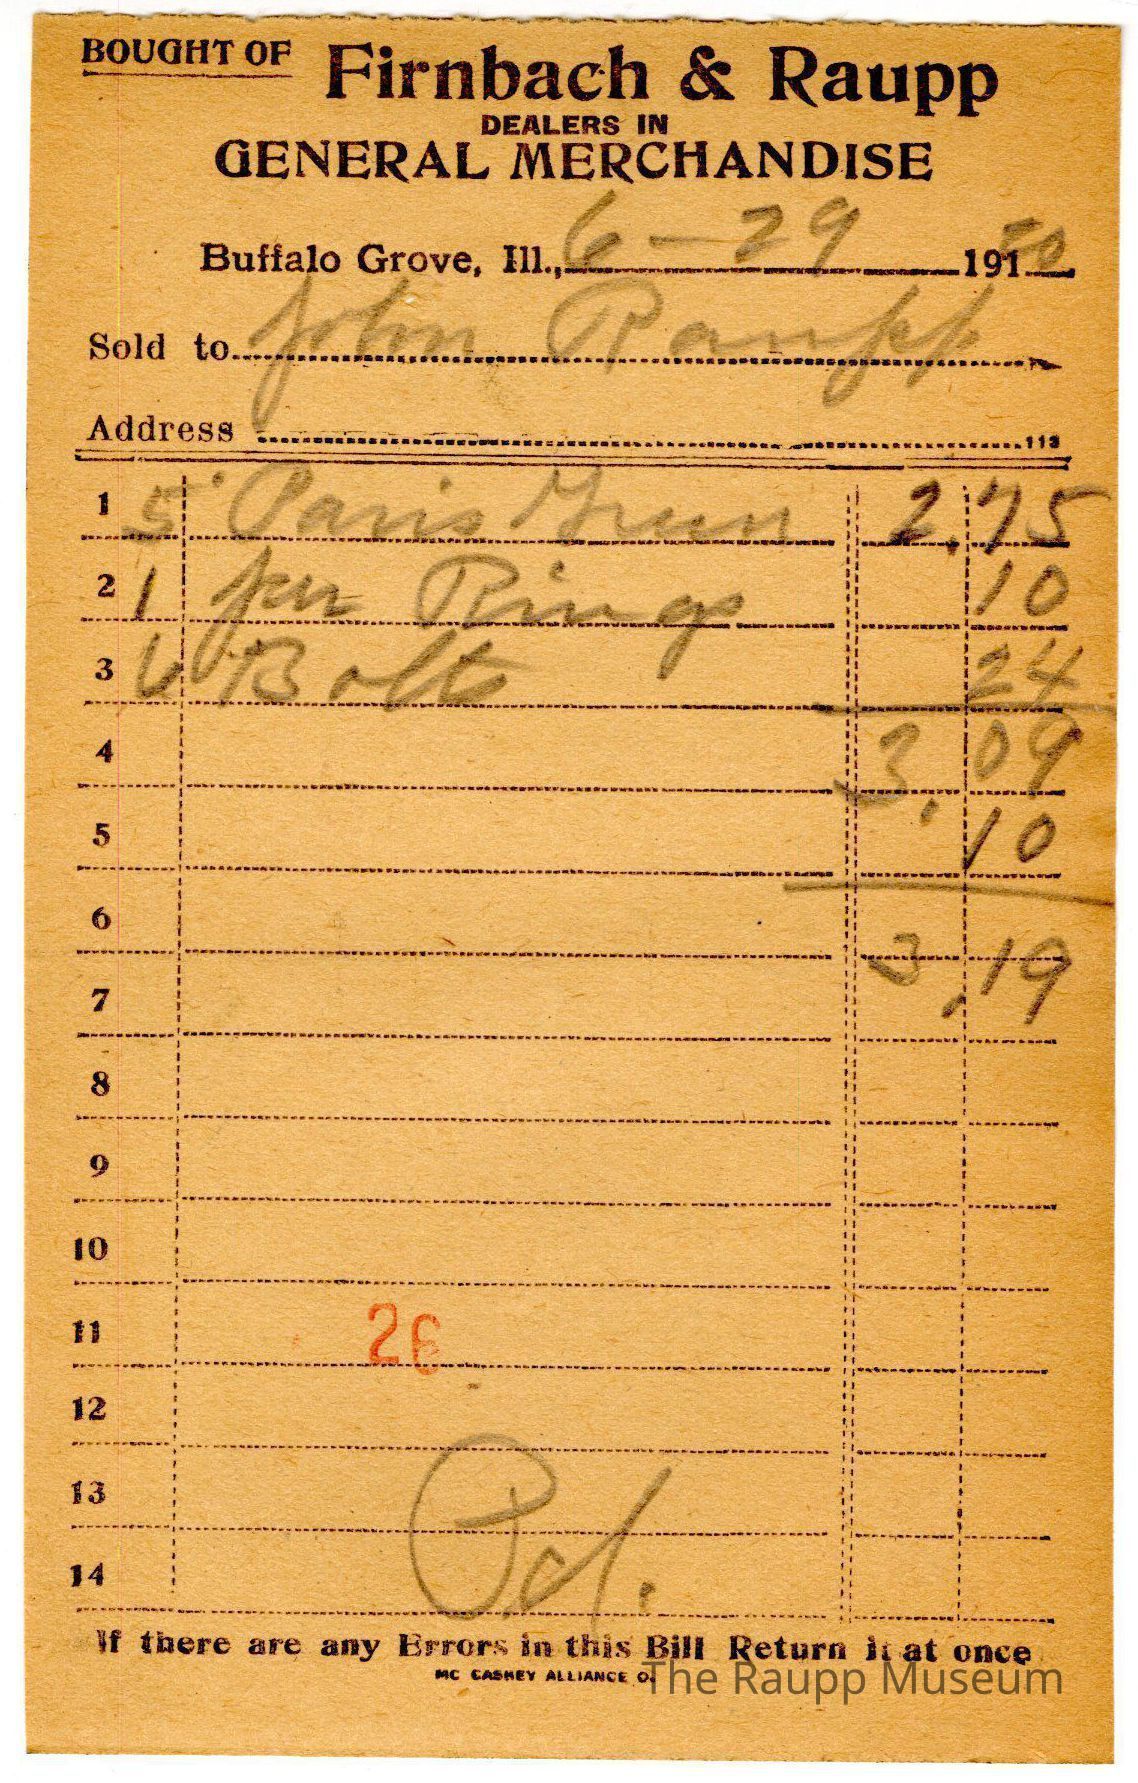 BOUGHT OF Firnbach & Raupp
DEALERS IN
GENERAL MERCHANDISE
Buffalo Grove, Ill., 6-29 19120
Sold to John Raupp
Address 113
1 5 Paris Green 2.75
2 1 pr Rings 10
3 6 Bolts 24
4 3.09
5 10
6 3.19
7
8
9
10
11 26
12
13
14 Pd.
If there are any Errors in this Bill Return it at once
MC CASKEY ALLIANCE O.
The Raupp Museum